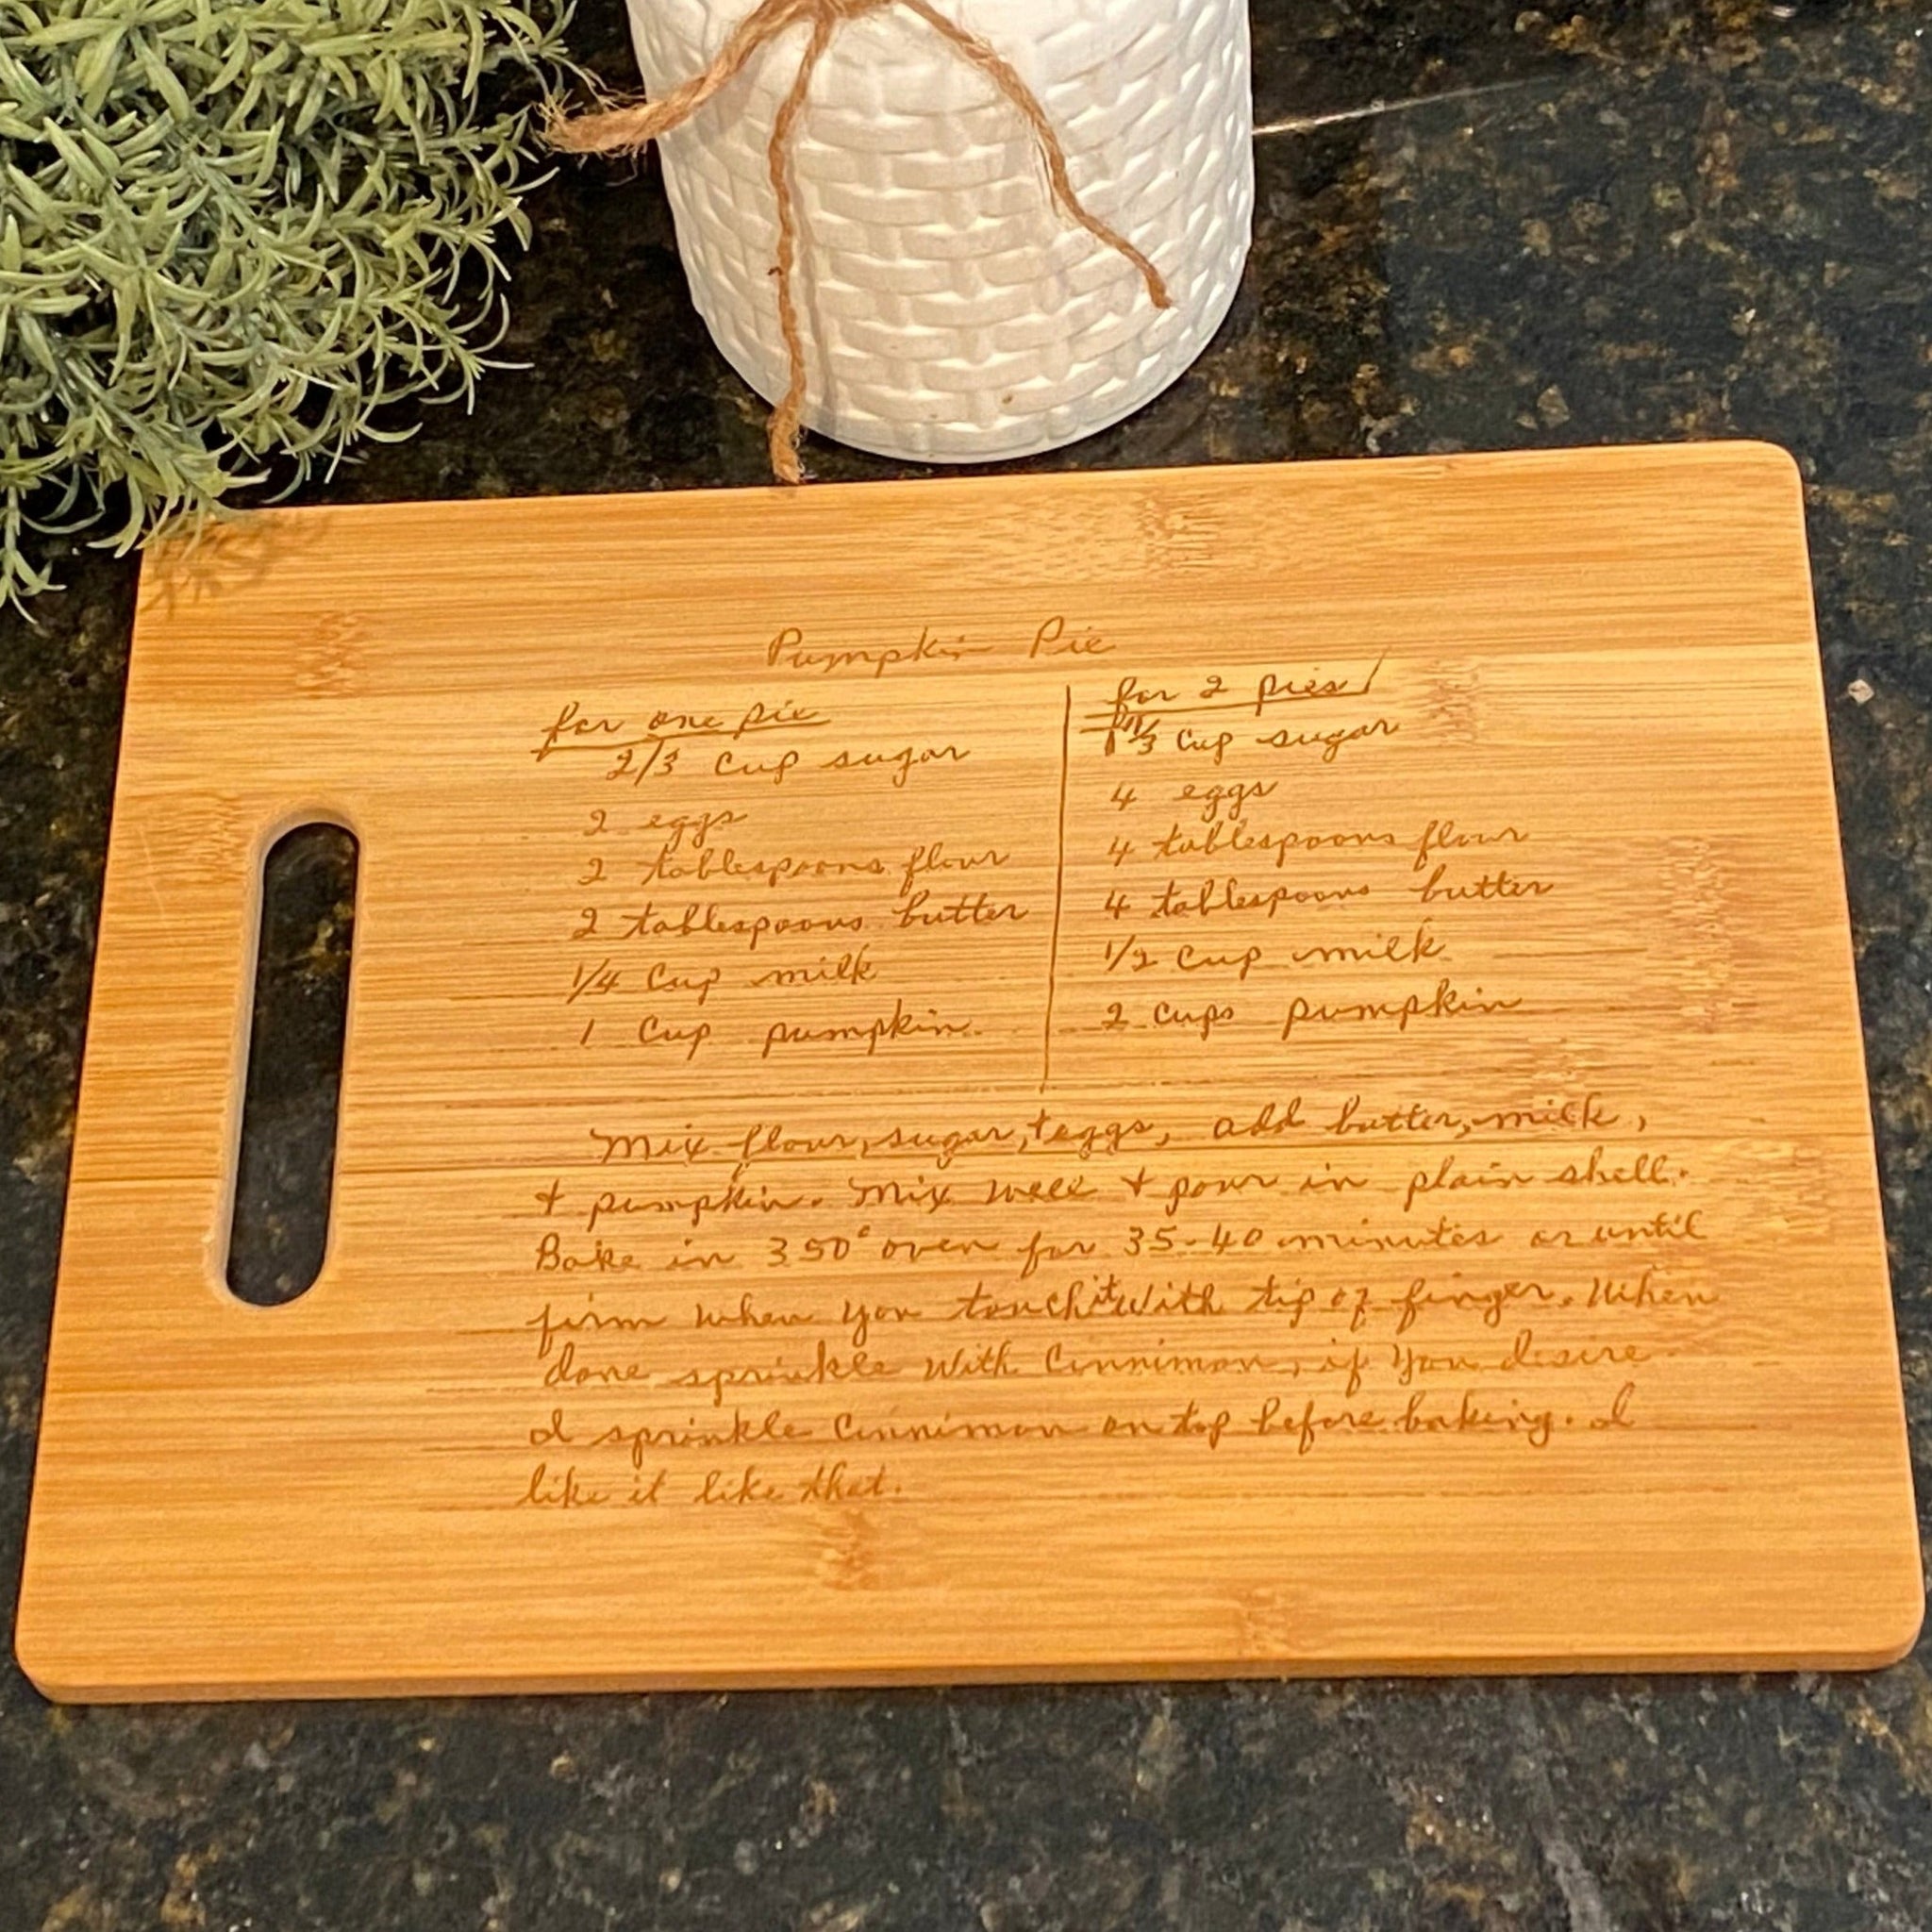 Pumpkin Pie
for one pie
2/3 cup sugar
2 eggs
2 tablespoons flour
2 tablespoons butter
1/4 cup milk
1 cup pumpkin.
for 2 pies
1 1/3 cup sugar
4 eggs
4 tablespoons flour
4 tablespoons butter
1/2 cup milk
2 cups pumpkin
Mix flour, sugar, + eggs, add butter, milk,
+ pumpkin. Mix well + pour in plain shell.
Bake in 350° oven for 35-40 minutes or until
firm when you touch it with tip of finger. When
done sprinkle with Cinnimon, if you desire
I sprinkle Cinnimon on top before baking. I
like it like that.